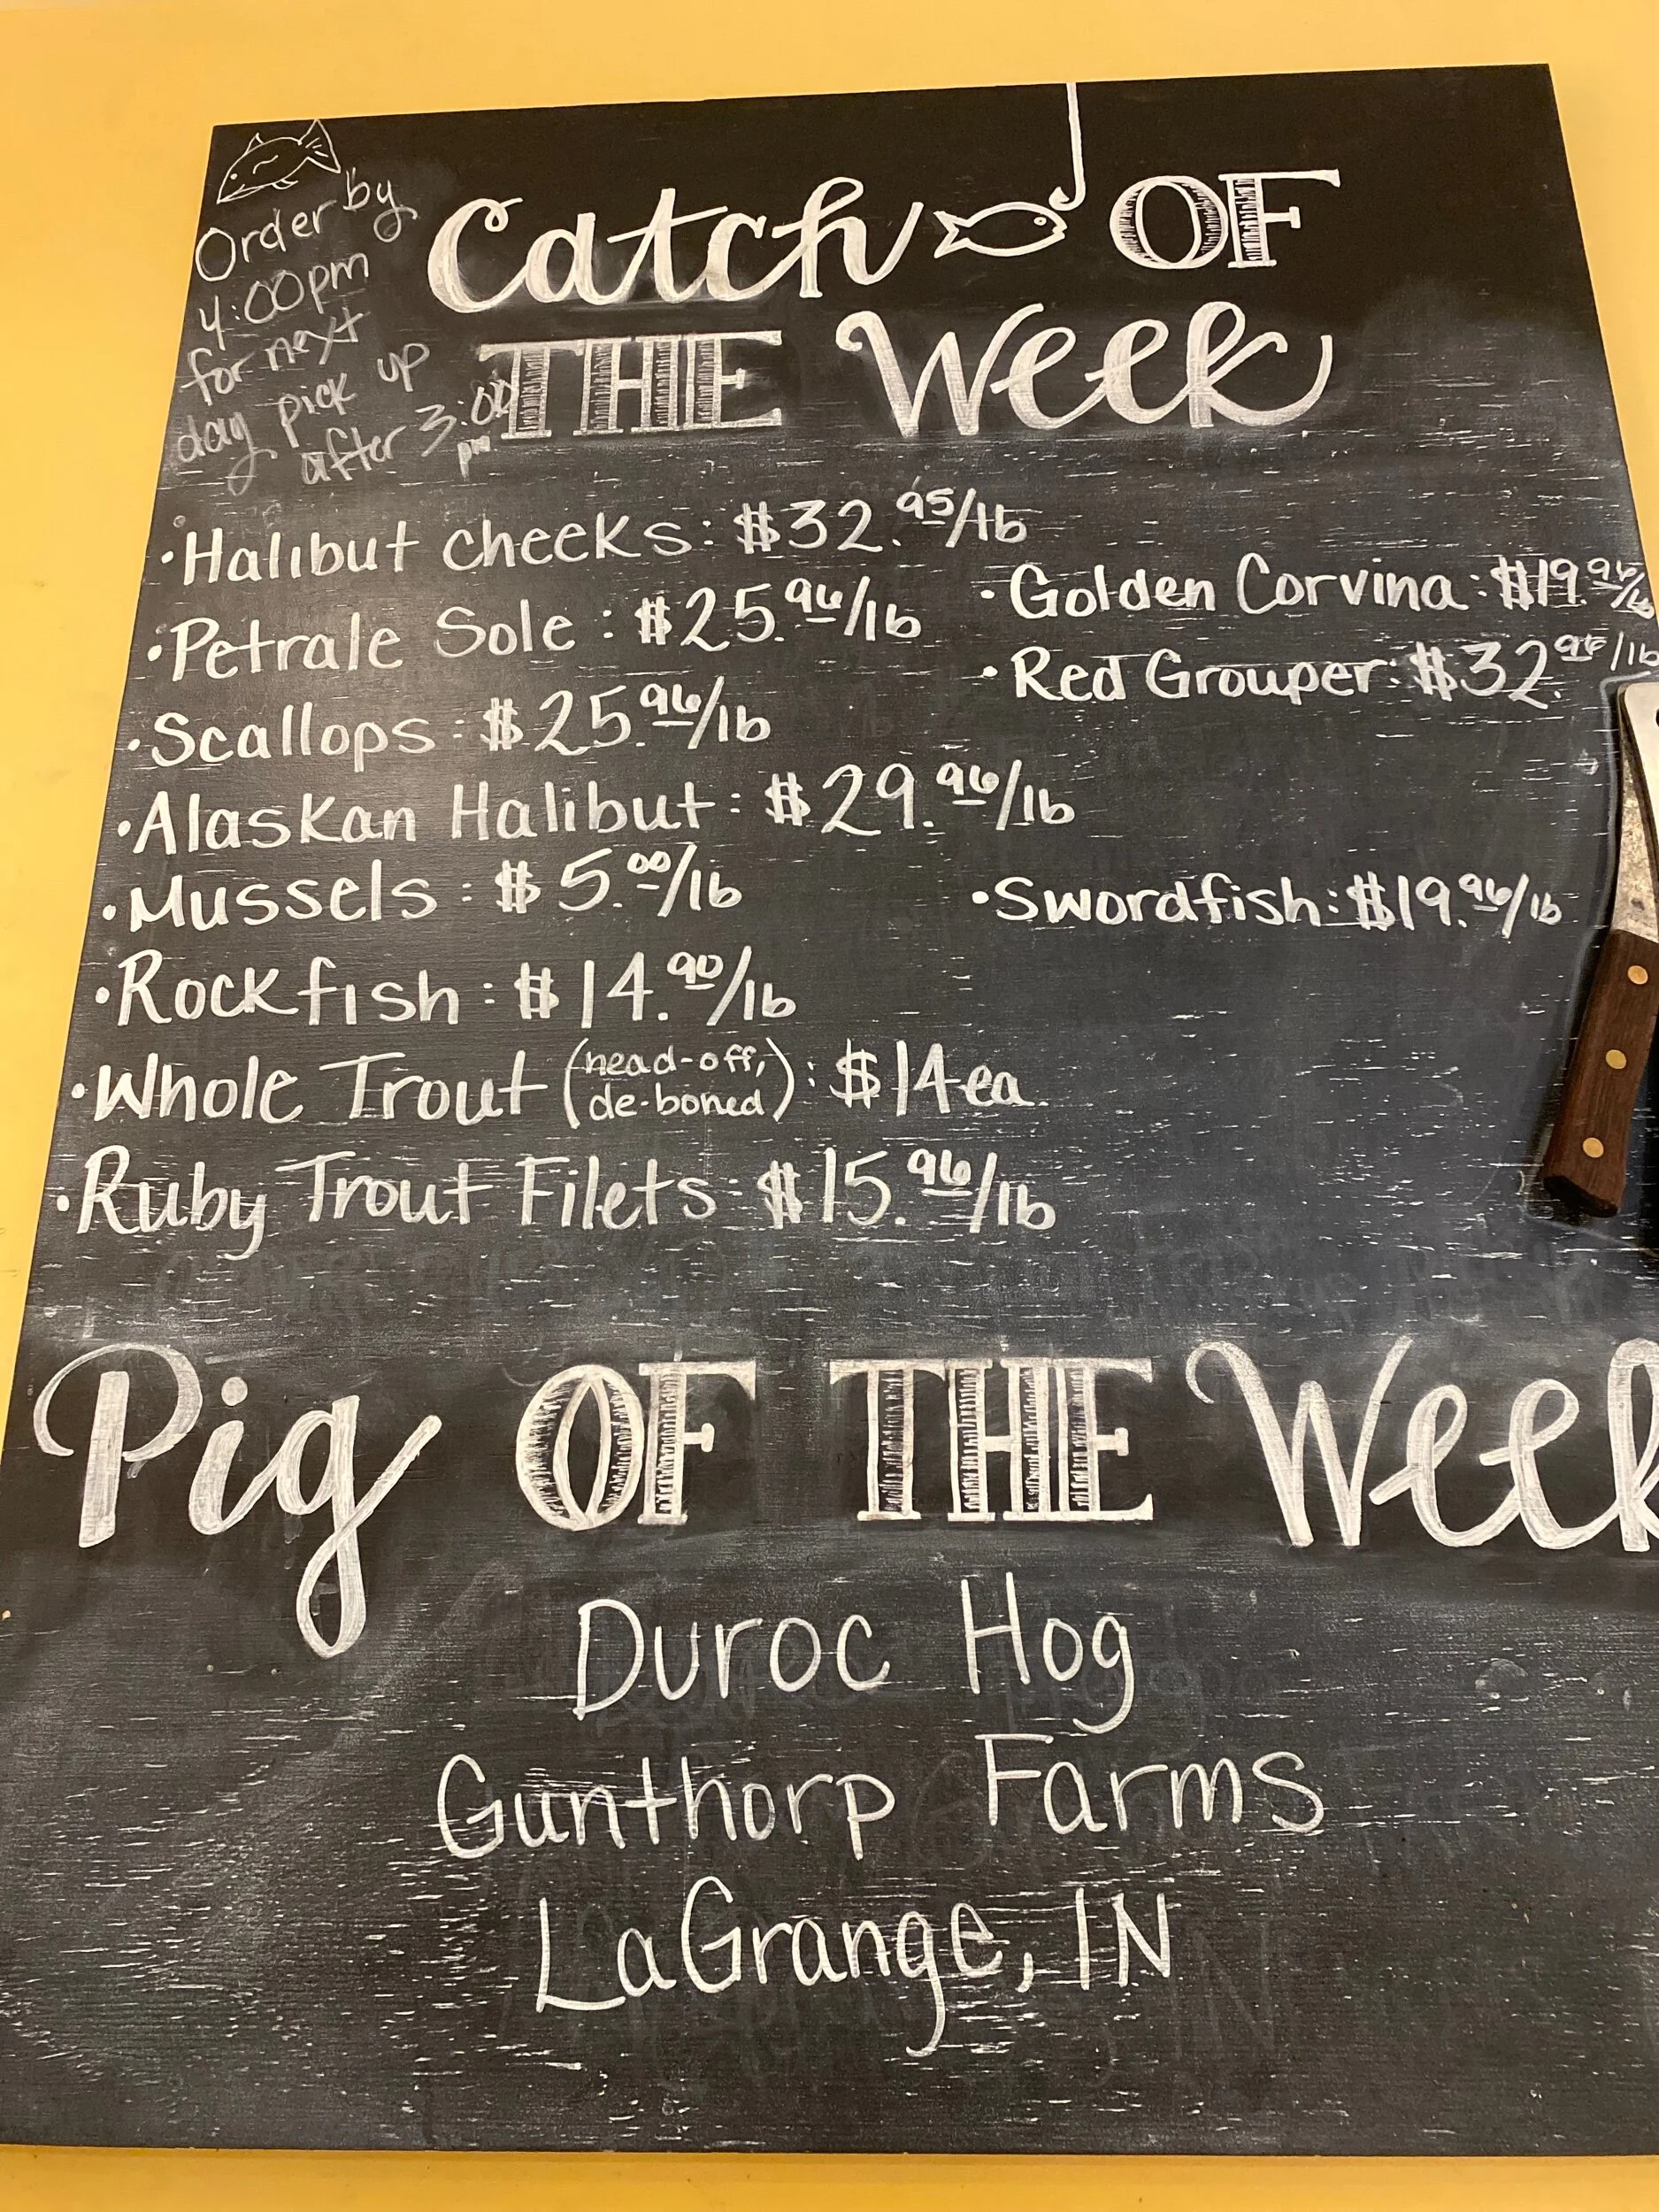 Order by
4:00pm
for next
day pick up
after 3:00
pm
Catch OF
THE Week
•Halibut cheeks: $32.95/lb
•Petrale Sole: $25.96/lb
•Scallops: $25.96/lb
•Alaskan Halibut: $29.96/lb
•Mussels: $5.00/lb
•Rockfish: $14.90/lb
•Whole Trout (head-off, de-boned): $14ea.
•Ruby Trout Filets: $15.96/lb
•Golden Corvina: $19.96/lb
•Red Grouper: $32.96/lb
•Swordfish: $19.96/lb
Pig OF THE Week
Duroc Hog
Gunthorp Farms
LaGrange, IN